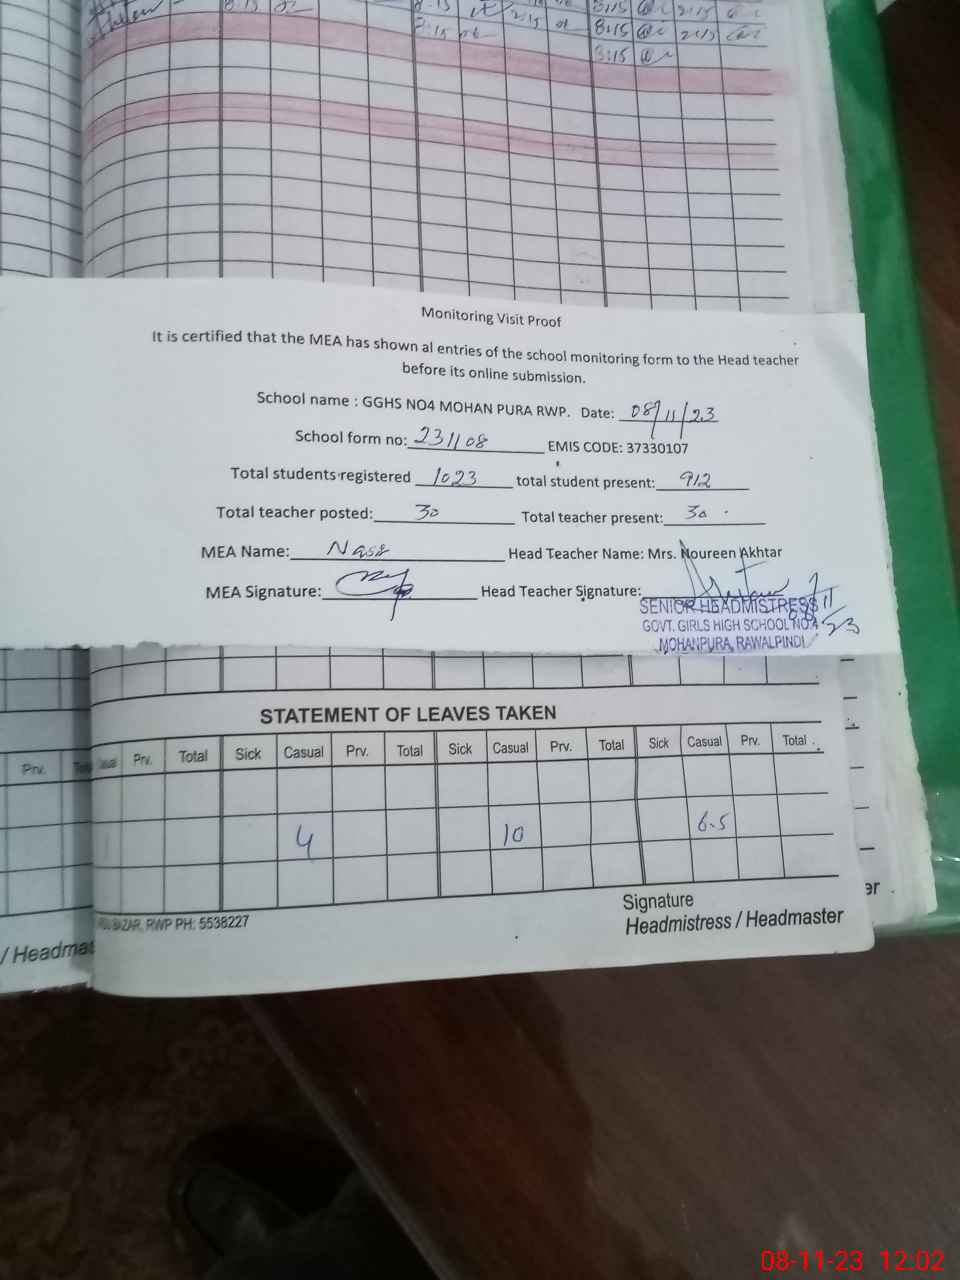 8:15 2:15
8:15 2:15 8:15 2:15
3:15
Monitoring Visit Proof
It is certified that the MEA has shown al entries of the school monitoring form to the Head teacher
before its online submission.
School name : GGHS NO4 MOHAN PURA RWP. Date: 08/11/23
School form no: 231108 EMIS CODE: 37330107
Total students registered 1023 total student present: 912
Total teacher posted: 30 Total teacher present: 30
MEA Name: Nasir Head Teacher Name: Mrs. Noureen Akhtar
MEA Signature: Head Teacher Signature:
SENIOR HEADMISTRESS
GOVT. GIRLS HIGH SCHOOL NO.4
MOHANPURA, RAWALPINDI
8/11/23
STATEMENT OF LEAVES TAKEN
Prv. Prv. Total Sick Casual Prv. Total Sick Casual Prv. Total Sick Casual Prv. Total
4 10 6.5
BAZAR, RWP PH: 5538227
Signature
Headmistress / Headmaster
/ Headmas
er
08-11-23 12:02